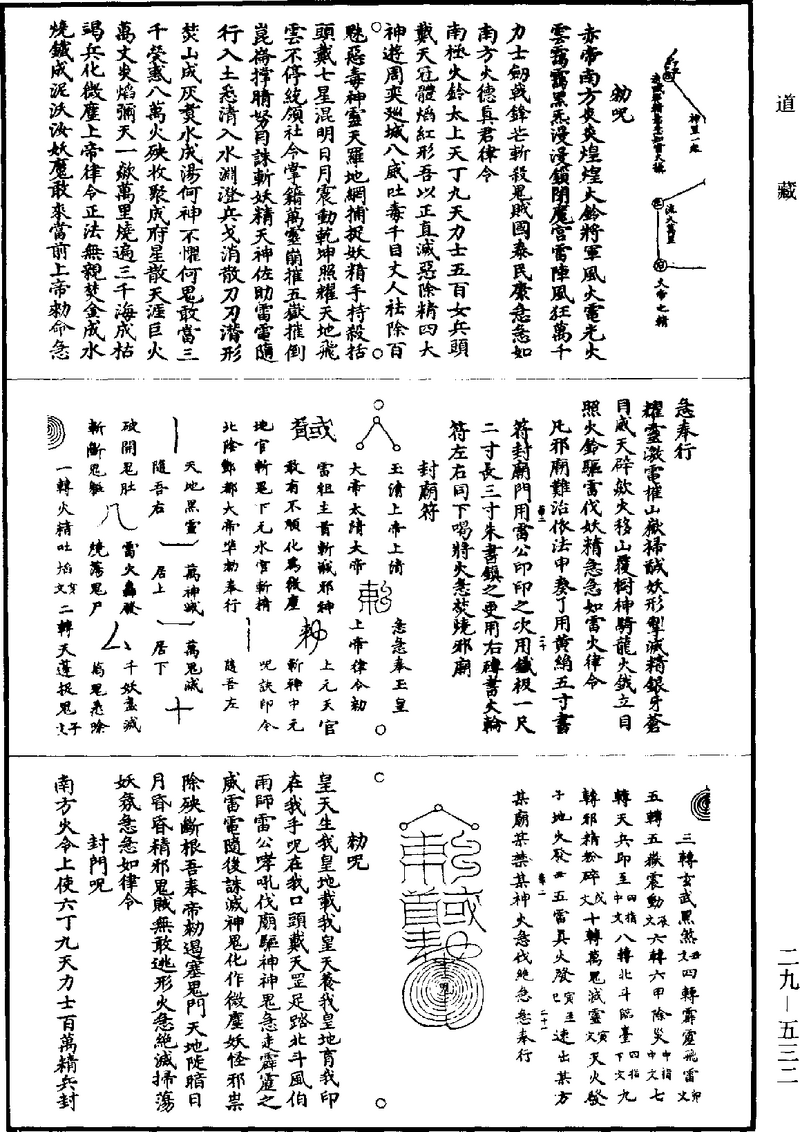 道藏
神星一起
流火萬里
火帝之精
勑呪
赤帝南方炎炎煌煌火鈴將軍風火電光火
雲靄靄黑炁漫漫鎖閉魔宮雷陣風狂萬千
力士劒戟鋒芒斬殺鬼賊國泰民康急急如
南方火德真君律令
南極火鈴太上天丁九天力士五百女兵頭
戴天冠體焰紅形吾以正直滅惡除精四大
神遊周奕廵城八威吐毒千目丈人祛除百
魅惡毒神靈天羅地網捕捉妖精手持殺括
頭戴七星混明日月震動乾坤照耀天地飛
雲不停統領社令掌籍萬靈崩摧五嶽摧倒
崑崙撑睛努目誅斬妖精天神佐助雷電隨
行入土悉清入水淵澄兵戈消散刀刃潛形
焚山成灰煑水成湯何神不懼何鬼敢當三
千熒惑八萬火殃收聚成府星散天涯巨火
萬丈炎焰彌天一歘萬里燒遍三千海成枯
竭兵化微塵上帝律令正法無親焚金成水
燒鐵成泥沃汝妖魔敢來當前上帝勑命急
急奉行
耀靈激電摧山嶽掃馘妖形掣滅精銀牙蒼
目威天辟歘火移山覆樹神騎龍火鉞立目
照火鈴驅雷伐妖精急急如雷火律令
凡邪廟難治依法申奏了用黃絹五寸書
符封廟門用雷公印印之次用鐵板一尺
二寸長三寸朱書鎮之更用右磚書火輪
符左右同下喝將火急焚燒邪廟
封廟符
玉清上帝上清
大帝太清大帝
急急奉玉皇
上帝律令勑
雷祖主首斬馘邪神
敢有不順化為微塵
上元天官
斬神中元
地官斬鬼下元水官斬精
北陰酆都大帝準勑奉行
呪訣印令
隨吾左
天地黑靈
隨吾右
萬神滅
居上
萬鬼滅
居下
破開鬼肚
斬斷鬼軀
雷火轟發
燒蕩鬼尸
千妖盡滅
萬鬼悉除
一轉火精吐焰寅文二轉天蓬捉鬼子文
三轉玄武黑煞丑文四轉霹靂飛雷卯文
五轉五嶽震動辰文六轉六甲除災中指中文七
轉天兵即至四指中文八轉北斗臨臺四指下文九
轉邪精粉碎戌文十轉萬鬼滅靈寅文天火發
子地火發丑五雷真火發寅至巳速出某方
某廟某禁某神火急伐絕急急奉行
勑呪
皇天生我皇地載我皇天養我皇地育我印
在我手呪在我口頭戴天罡足踏北斗風伯
雨師雷公哮吼伐廟驅神神鬼急走霹靂之
威雷電隨後誅滅神鬼化作微塵妖怪邪祟
除殃斷根吾奉帝勑遏塞鬼門天地陡暗日
月昏昏精邪鬼賊無敢逃形火急絕滅掃蕩
妖氛急急如律令
封門呪
南方火令上使六丁九天力士百萬精兵封
二九—五三二